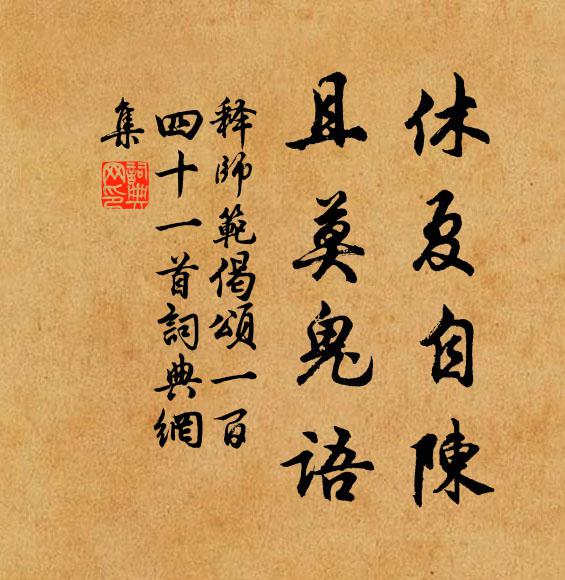 休夏自陳
且莫鬼語
释師範偈頌一百
四十一首詞典網
集
詞典
网印